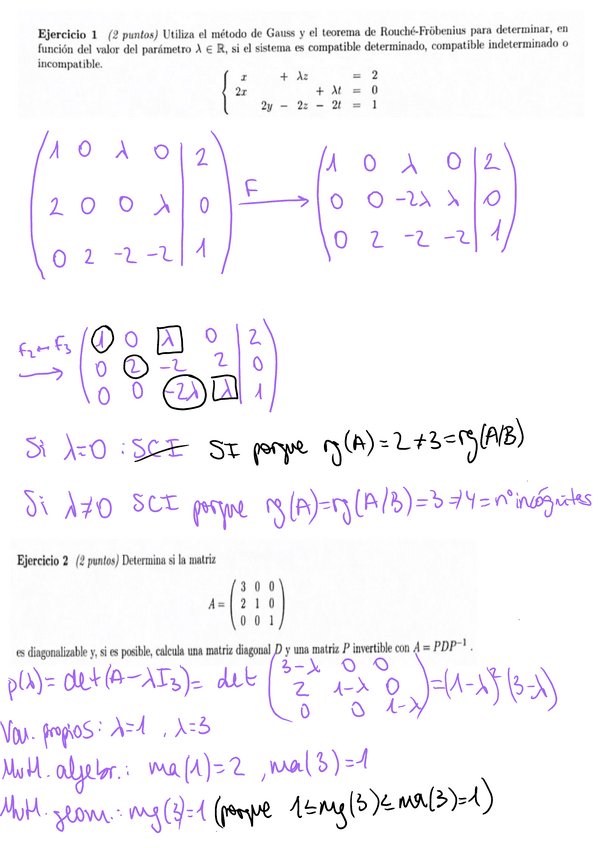 Ejercicio 1 (2 puntos) Utiliza el método de Gauss y el teorema de Rouché-Fröbenius para determinar, en
función del valor del parámetro λ ∈ ℝ, si el sistema es compatible determinado, compatible indeterminado o
incompatible.
x + λz = 2
2x + λt = 0
2y − 2z − 2t = 1
1 0 λ 0 | 2
2 0 0 λ | 0
0 2 -2 -2 | 1
F
1 0 λ 0 | 2
0 0 -2λ λ | 0
0 2 -2 -2 | 1
F2↔F3
1 0 λ 0 | 2
0 2 -2 2 | 0
0 0 -2λ λ | 1
Si λ=0 : SCI SI porque rg(A)=2≠3=rg(A/B)
Si λ≠0 SCI porque rg(A)=rg(A/B)=3≠4=nº incógnitas
Ejercicio 2 (2 puntos) Determina si la matriz
A =
3 0 0
2 1 0
0 0 1
es diagonalizable y, si es posible, calcula una matriz diagonal D y una matriz P invertible con A = PDP⁻¹ .
p(λ)= det(A-λI₃)= det
3-λ 0 0
2 1-λ 0
0 0 1-λ
=(1-λ)²(3-λ)
Var. propios: λ=1 , λ=3
Mult. algebr.: ma(1)=2 , ma(3)=1
Mult. geom.: mg(3)=1 (porque 1≤mg(3)≤ma(3)=1)